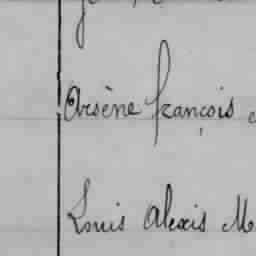 Arsène françois
Louis Alexis M